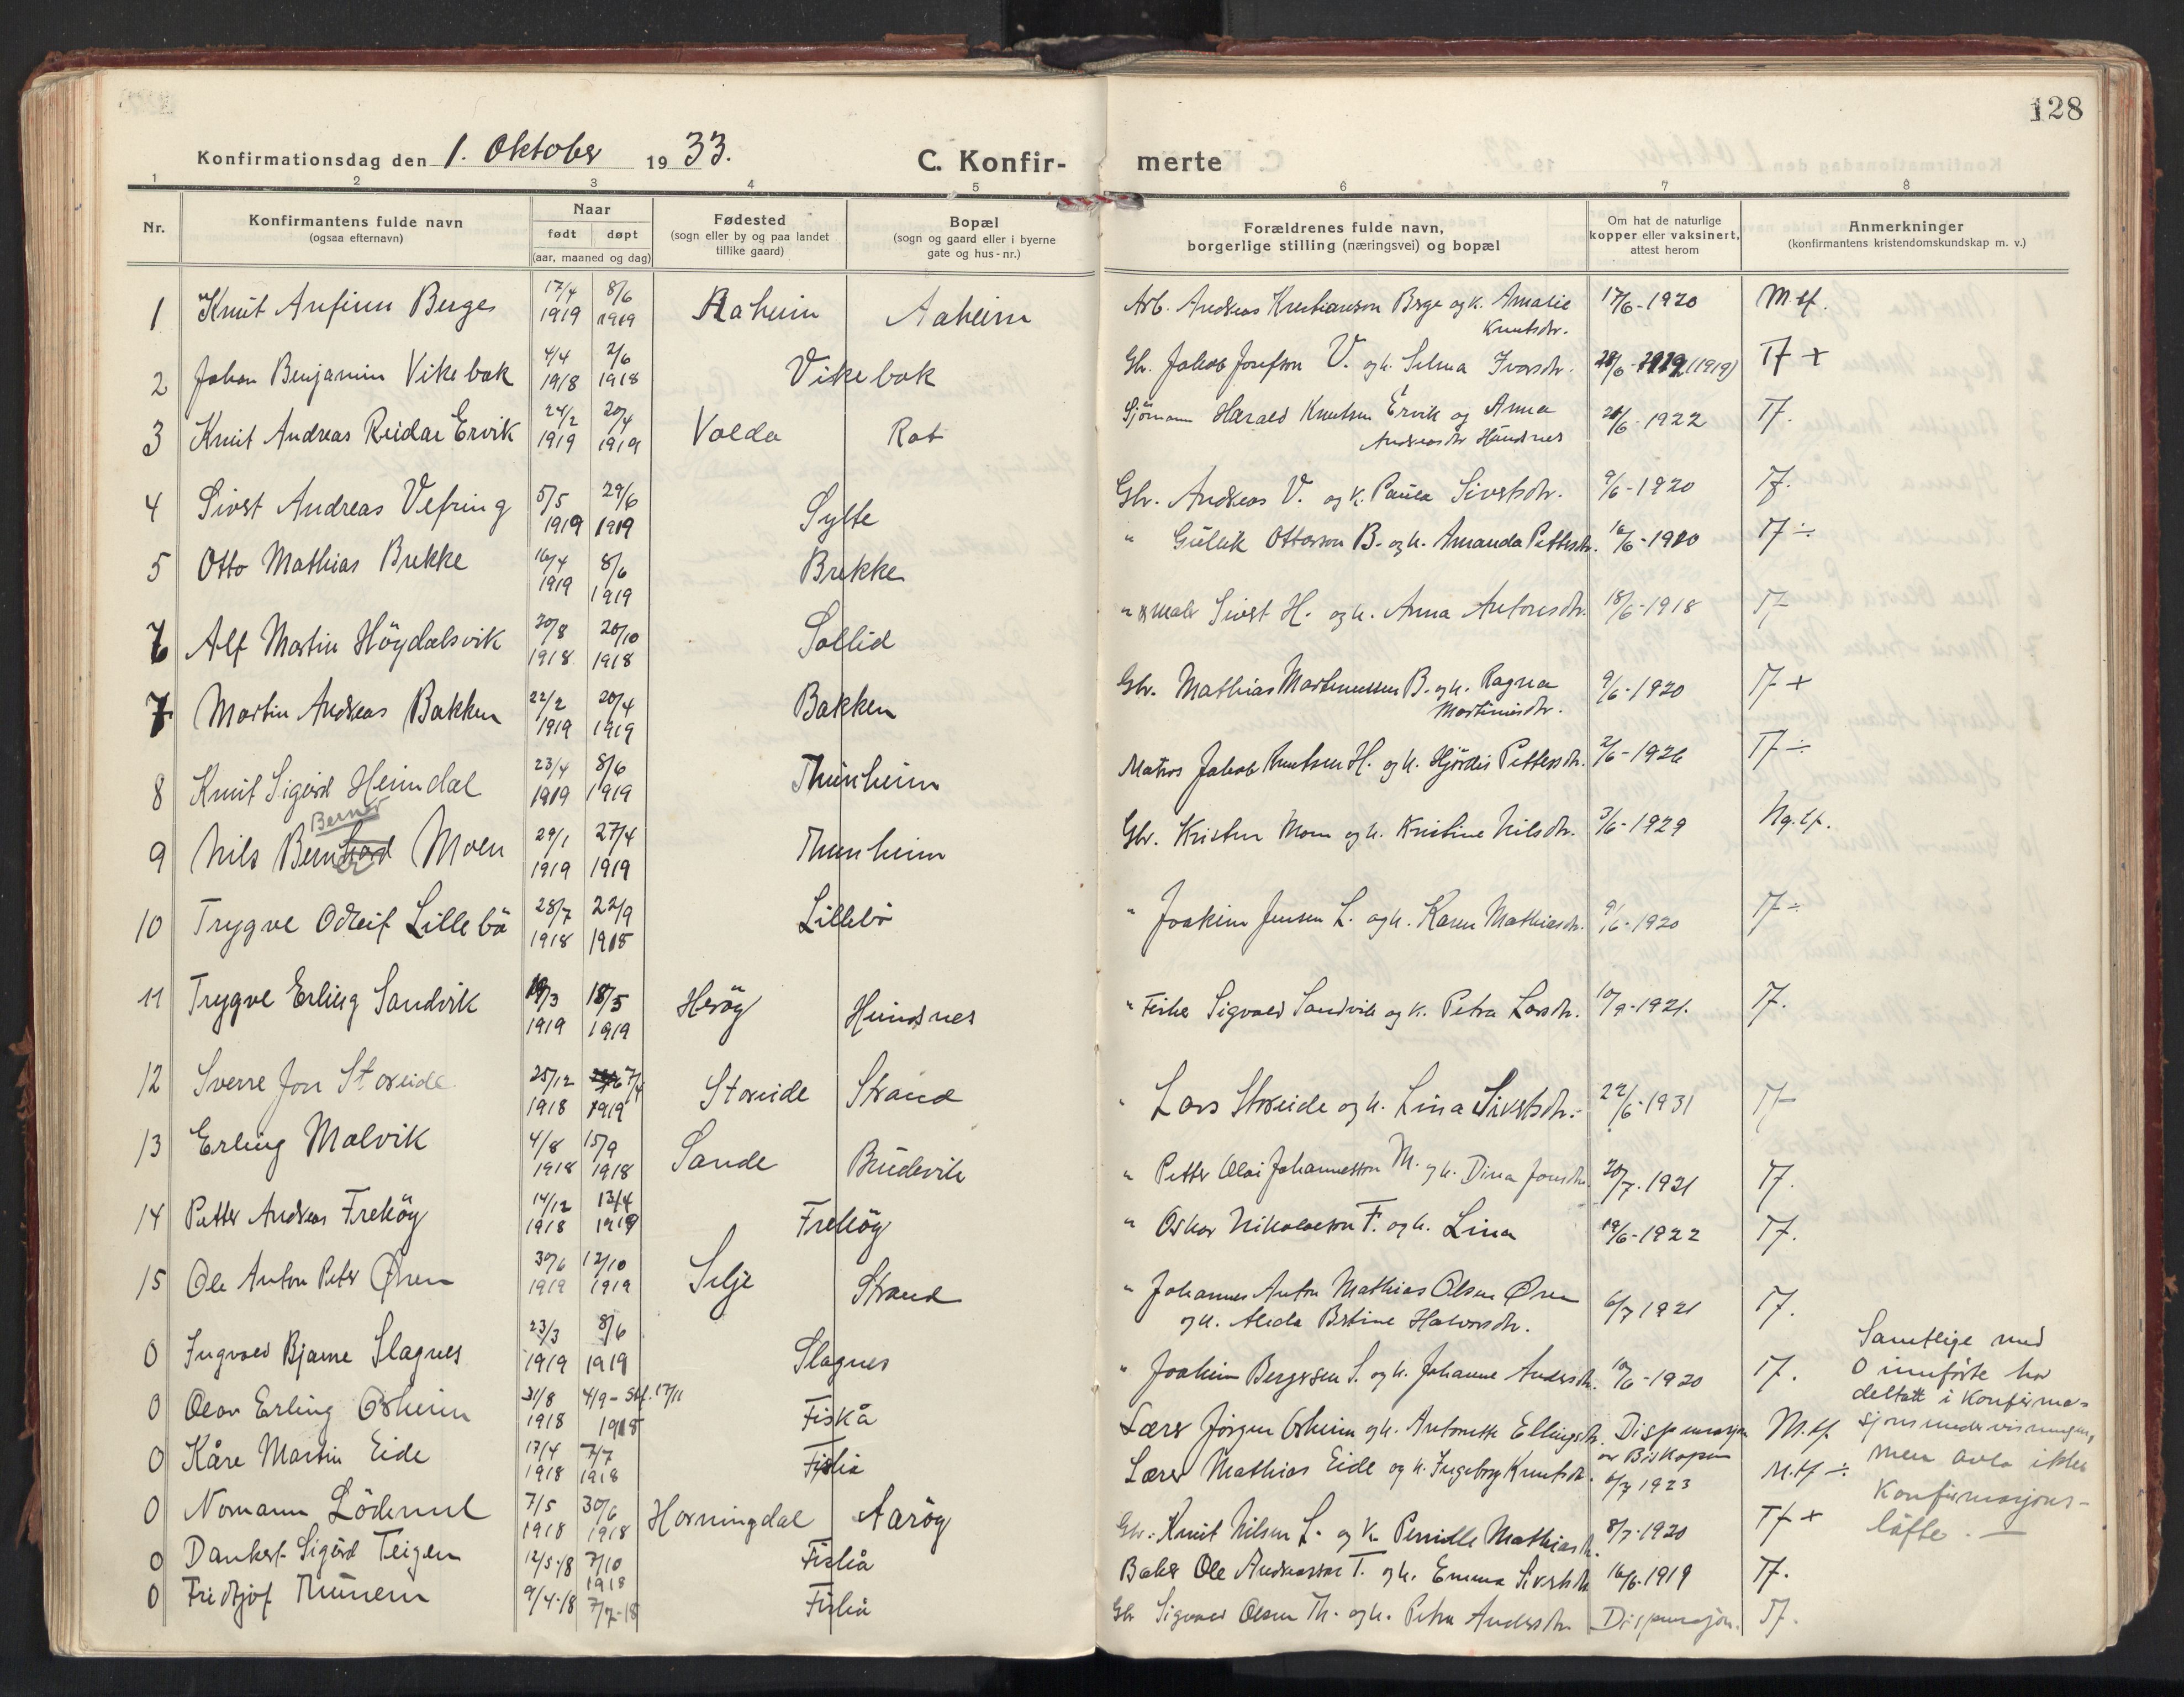 128
Konfirmationsdag den 1. Oktober 1933. C. Konfirmerte
1 2 3 4 5 6 7 8
Nr.
Konfirmantens fulde navn
(ogsaa efternavn)
Naar
født døpt
(aar, maaned og dag)
Fødested
(sogn eller by og paa landet
tillike gaard)
Bopæl
(sogn og gaard eller i byerne
gate og hus-nr.)
Forældrenes fulde navn,
borgerlige stilling (næringsvei) og bopæl
Om hat de naturlige
kopper eller vaksinert,
attest herom
Anmerkninger
(konfirmantens kristendomskundskap m. v.)
1 Knut Arefinn Berge 17/4 1919 8/6 1919 Aaheim Aaheim Arb. Andreas Kristiansen Berge og k. Amalie Knutsdtr. 17/6-1920 M.tf.
2 Johan Benjamin Vikebak 4/4 1918 2/6 1918 Vikebak Gbr. Jakob Josefson V. og k. Selma Ivarsdtr. (1919) Tf +
3 Knut Andreas Reidar Ervik 24/2 1919 20/4 1919 Volda Rot Sjömann Harald Knutsen Ervik og Anna Andreasdtr Haudnes 1922 Tf.
4 Sivert Andreas Vefring 5/5 1919 29/6 1919 Sylte Gbr. Andreas V. og k. Paula Sivertsdtr. 9/6-1920 Tf.
5 Otto Mathias Brekke 16/4 1919 8/6 1919 Brekke " Gullik Ottosson B. og k. Amanda Pettersdtr. 16/6-1920 Tf ÷
6 Alf Martin Högdalsvik 20/8 1918 20/10 1918 Sollid " Sivert H. og k. Anna Antonsdtr. 18/6-1918 Tf
7 Martin Andreas Bakken 22/2 1919 20/4 1919 Bakken Gbr. Mathias Martinussen B. og k. Ragna Martinusdtr. 9/6-1920 Tf +
8 Knut Sigurd Heimdal 23/4 1919 8/6 1919 Thunheim Matros Jakob Knutsen H. og k. Hjördis Pettersdtr. 2/6-1926 Tf ÷
9 Nils Bernhard Berner Moen 29/1 1919 27/4 1919 Thunheim Gbr. Kristen Moen og k. Kristine Nilsdtr. 3/6-1929 Ng.tf.
10 Trygve Odleif Lillebö 28/7 1918 22/9 1918 Lillebö " Joakim Jensen L. og k. Karen Mathiasdtr. 9/6-1920 Tf ÷
11 Trygve Erling Sandvik 19/3 1919 18/5 1919 Heröy Hundsnes " Fisker Sigvald Sandvik og k. Petra Larsdtr. 10/9-1921. Tf.
12 Sverre Jon Storeide 25/12 1918 7/4 1919 Storeide Strand " Lars Storeide og k. Lina Sivertsdtr. 22/6-1931 Tf
13 Erling Malvik 4/8 1918 15/9 1918 Sande Brudevik " Petter Olai Johannesson M. og k. Dina Jonsdtr 20/7-1921 Tf.
14 Petter Andreas Freköy 14/12 1918 13/4 1919 Freköy " Oskar Nikolaison F. og k. Lina 19/6-1922 Tf.
15 Ole Anton Peter Øren 30/6 1919 12/10 1919 Selje Strand " Johannes Anton Mathias Olsen Øren og k. Alida Bertine Halvorsdtr. 6/7 1921 Tf.
0 Ingvald Bjarne Slagnes 23/3 1919 8/6 1919 Slagnes " Joakim Bergersen S. og k. Johanne Andersdtr. 10/6-1920 Tf.
0 Olav Erling Osheim 31/8 1918 4/9 - Stf. 17/11 1918 Fiskå Lærer Jörgen Osheim og k. Antonette Ellingsdtr. Dispensasjon av Biskopen M.tf.
0 Kåre Martin Eide 17/4 1918 7/7 1918 Fiskå Lærer Mathias Eide og k. Ingeborg Knutsdtr. 6/7 1923 M.tf ÷
0 Normann Lödemel 7/5 1918 30/6 1918 Hornindal Aaröy Gbr. Knut Nilsen L. og k. Pernille Mathiasdtr. 8/7-1920 Tf +
0 Dankert Sigurd Teigen 12/5-18 7/10 1918 Fiskå Baker Ole Andreassen T. og k. Emma Sivertsdtr 16/6-1919 Tf.
0 Fridtjof Thunem 9/4-18 7/7-18 Fiskå Gbr Sigvald Olsen Th. og k. Petra Andersdtr. Dispensasjon. Tf.
Samtlige med
0 innförte har
deltatt i Konfirma-
sjonsundervisningen,
men avla ikke
Konfirmasjons-
löfte. —